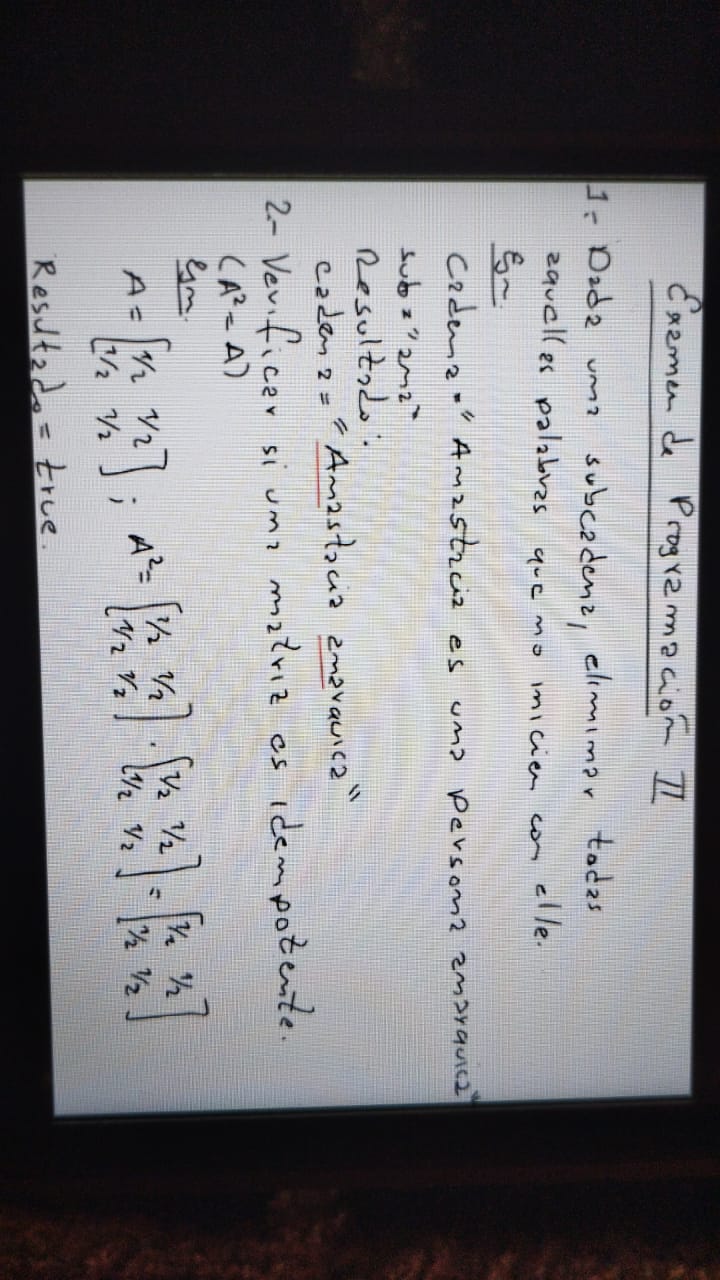 Examen de Programación II
1.- Dada una subcadena, eliminar todas
aquellas palabras que no inicien con elle.
Ejm.
Cadena = "Anastacia es una persona anarquica"
sub = "ana"
Resultado:
Cadena = "Anastacia anarquica"
2.- Verificar si una matriz es idempotente.
(A² = A)
Ejm.
A = [1/2 1/2; 1/2 1/2] ; A² = [1/2 1/2; 1/2 1/2] . [1/2 1/2; 1/2 1/2] = [1/2 1/2; 1/2 1/2]
Resultado = true.